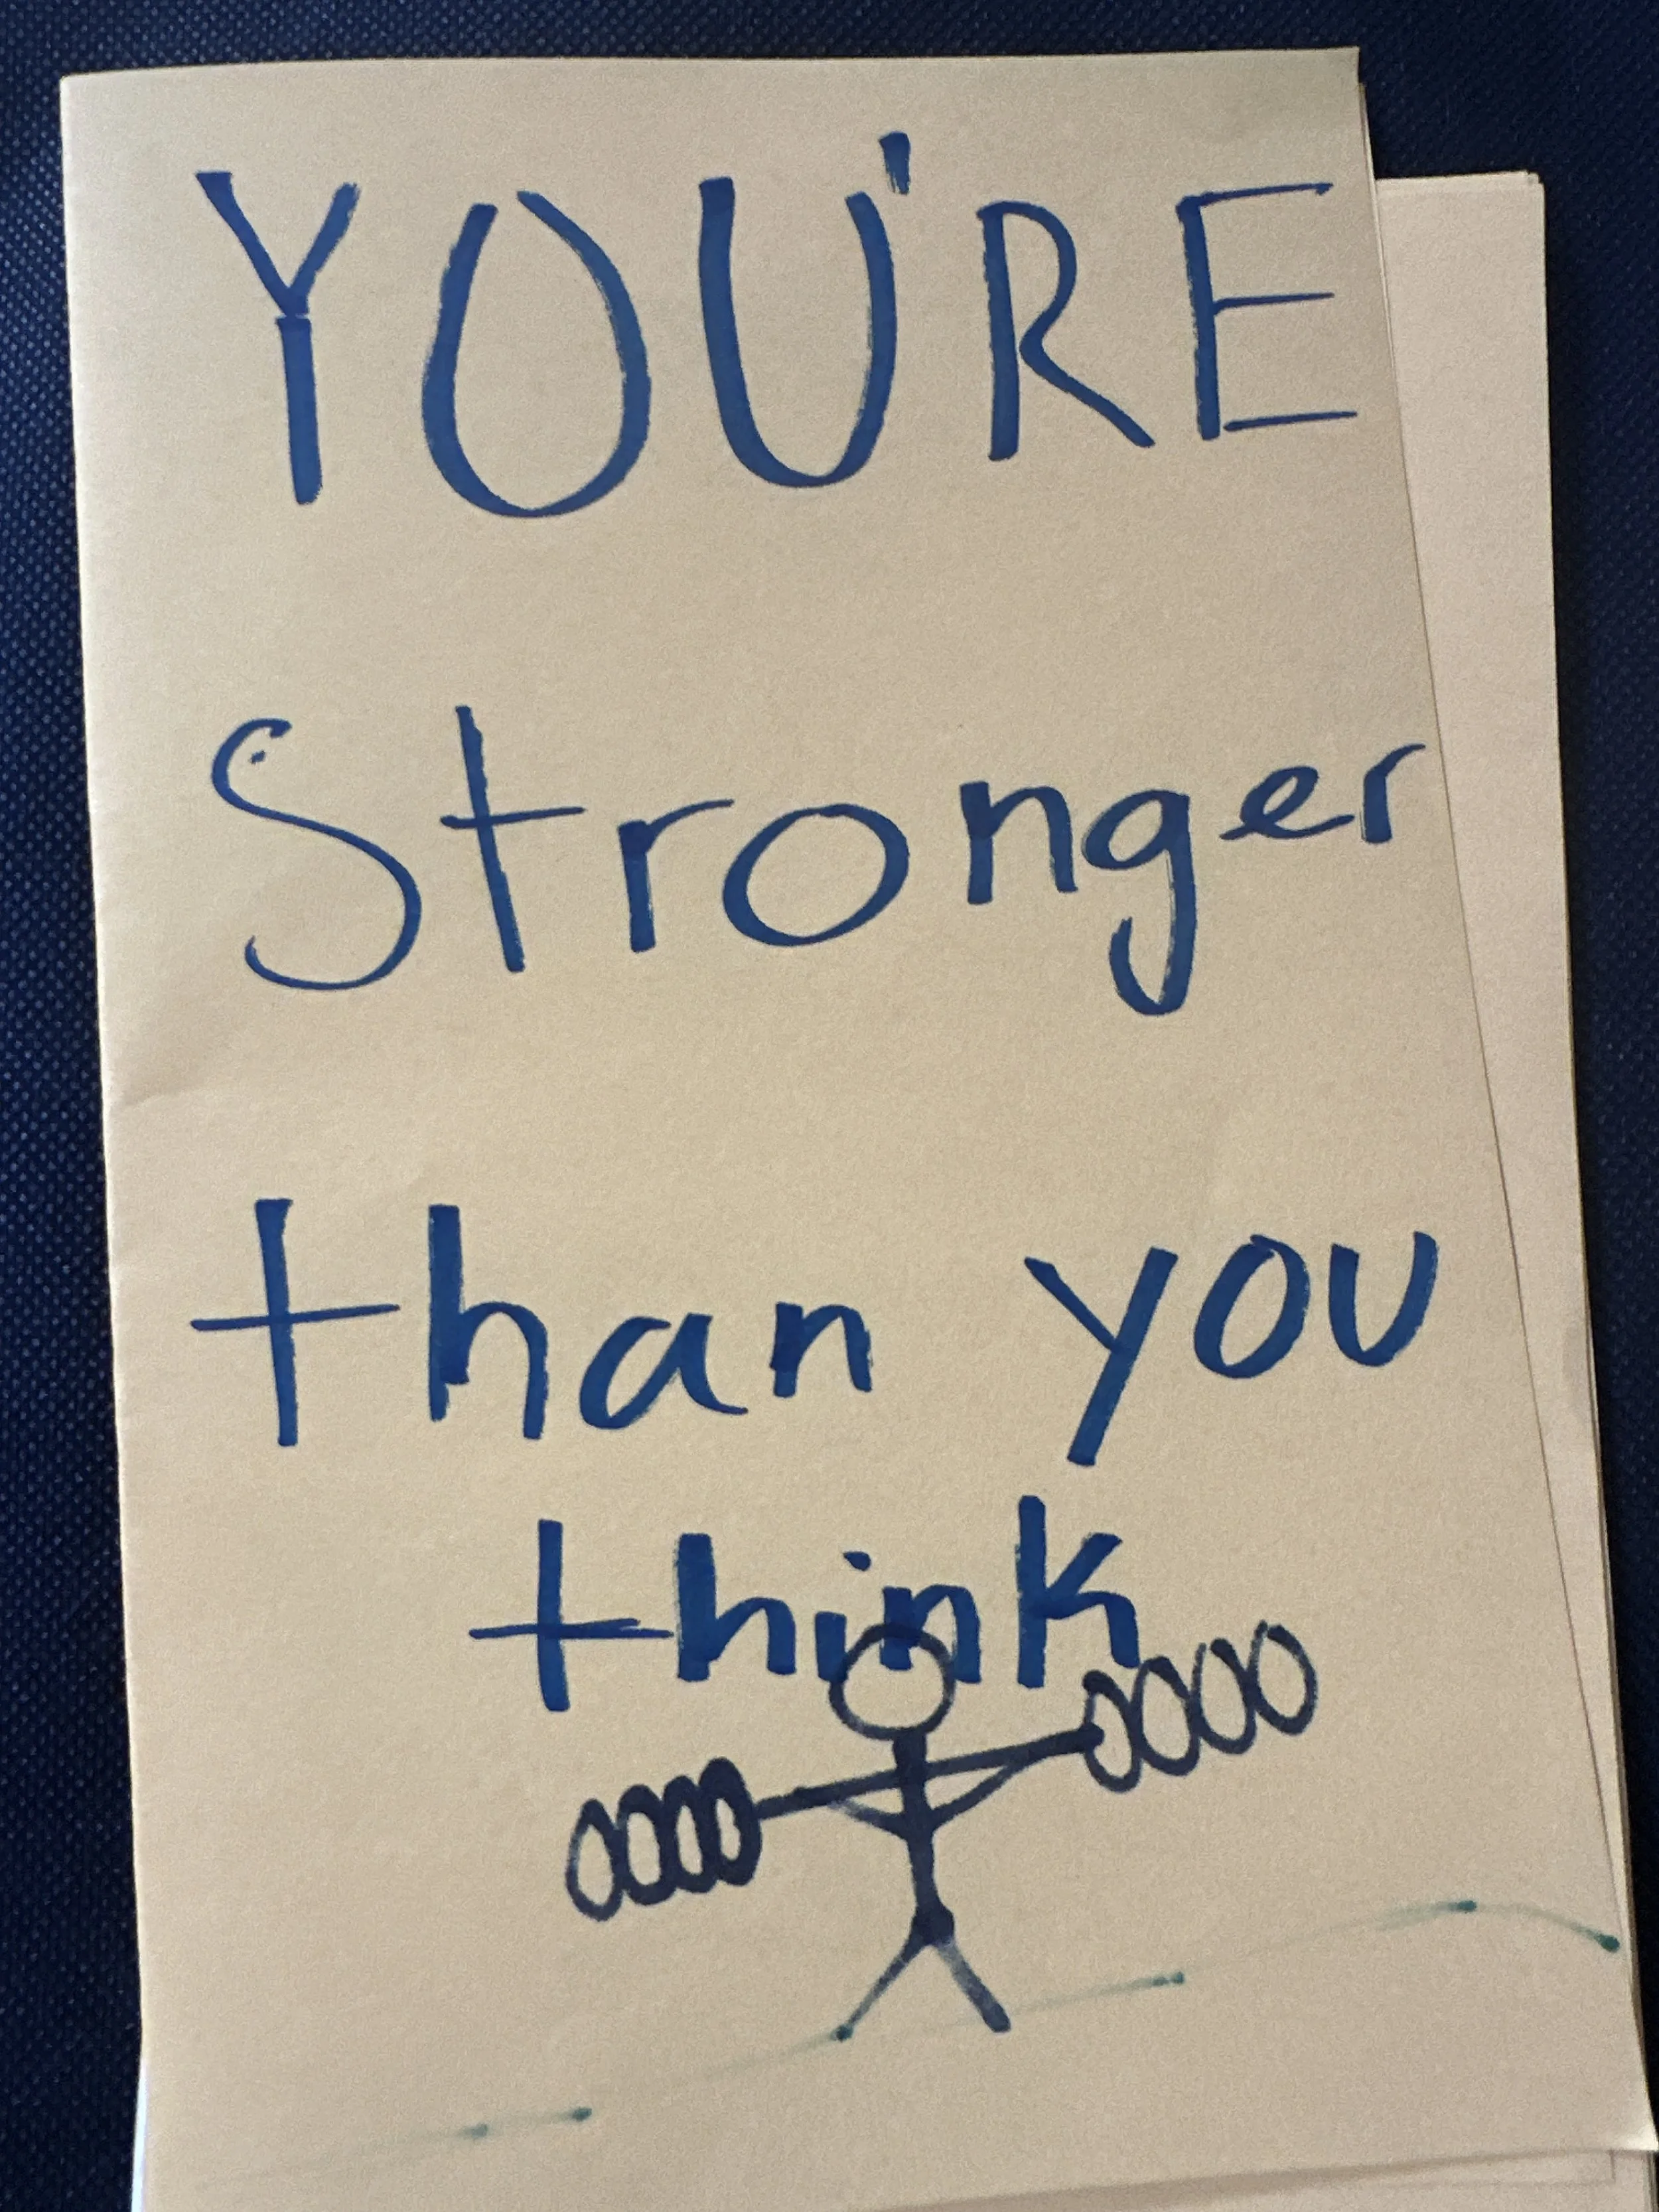 YOU'RE
Stronger
than you
think